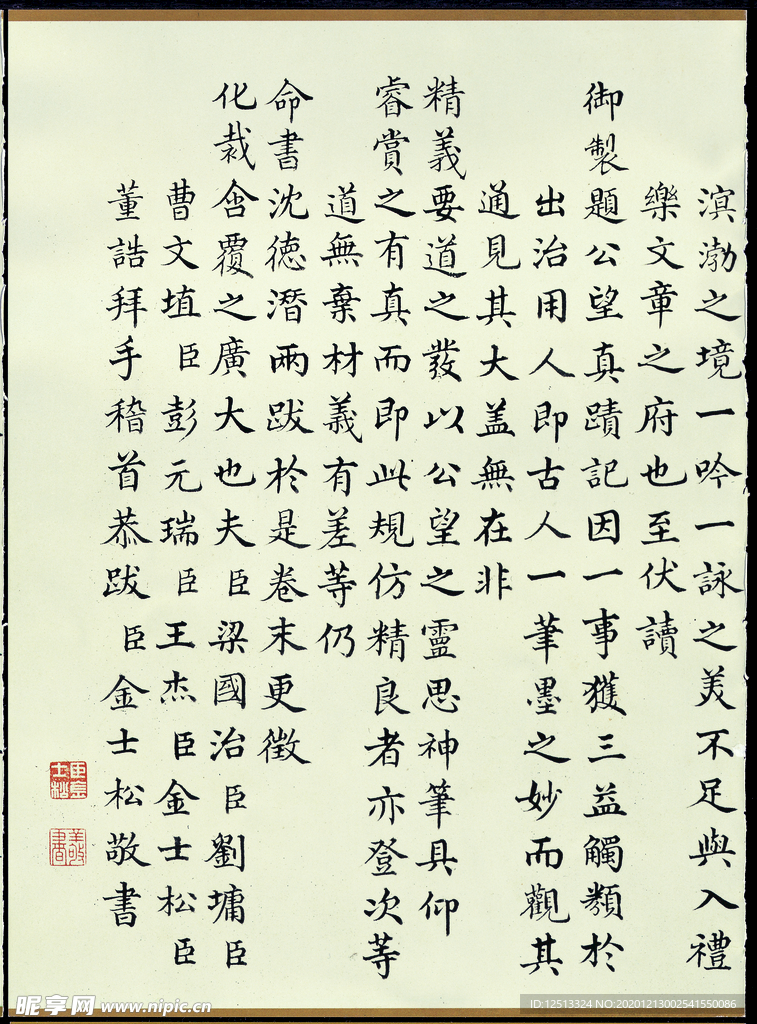 溟渤之境一吟一詠之美不足與入禮
樂文章之府也至伏讀
御製題公望真蹟記因一事獲三益觸類於
出治用人即古人一筆墨之妙而觀其
通見其大盖無在非
精義要道之發以公望之靈思神筆具仰
睿賞之有真而即此規仿精良者亦登次等
道無棄材義有差等仍
命書沈德潛兩跋於是卷末更徵
化裁含覆之廣大也夫臣梁國治臣劉墉臣
曹文埴臣彭元瑞臣王杰臣金士松臣
董誥拜手稽首恭跋臣金士松敬書
昵享网 www.nipic.cn
ID:12513324 NO:20201213002541550086